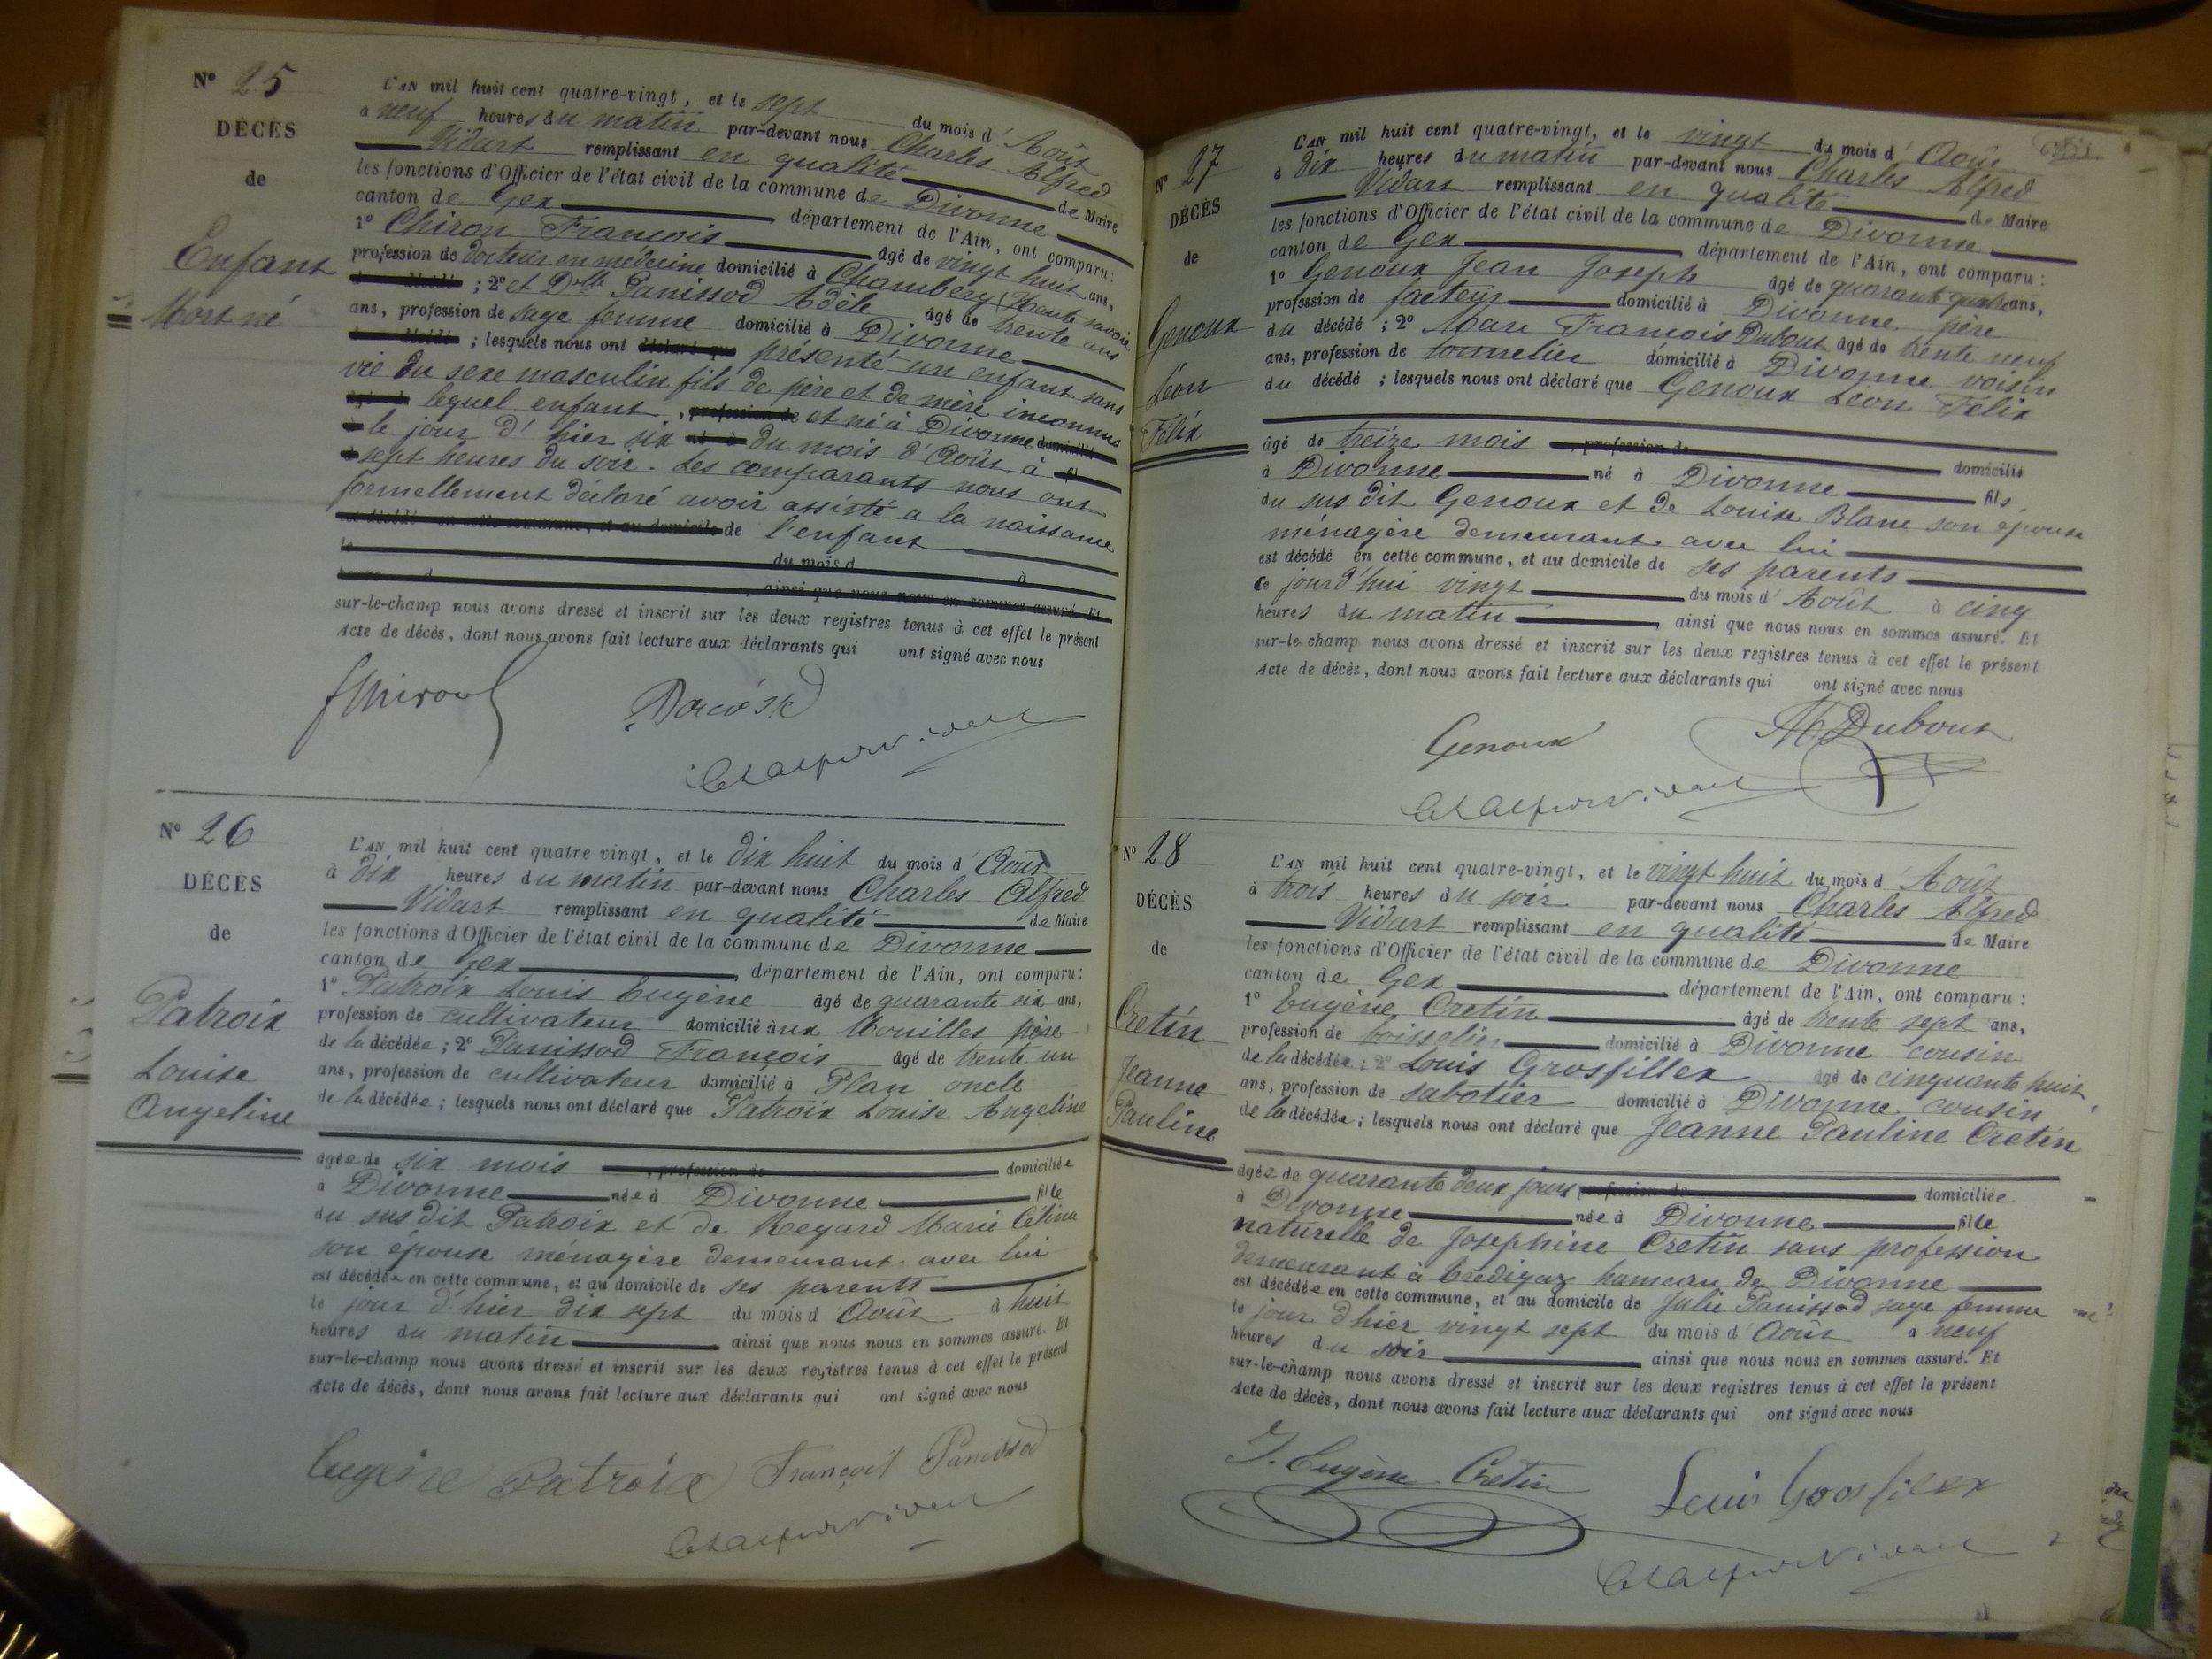 N° 25
DÉCÈS
de
Enfant
Mort né
L'AN mil huit cent quatre-vingt, et le sept du mois d'Août
à neuf heures du matin par-devant nous Charles Alfred
Vidart remplissant en qualité de Maire
les fonctions d'Officier de l'état civil de la commune de Divonne
canton de Gex département de l'Ain, ont comparu :
1° Chiron François âgé de vingt huit ans,
profession de docteur en médecine domicilié à Chambéry (Haute Savoie
; 2° et Dlle Panissod Adèle âgé de trente ans
ans, profession de sage femme domicilié à Divonne
; lesquels nous ont présenté un enfant sans
vie du sexe masculin fils de père et de mère inconnus
lequel enfant, et né à Divonne
le jour d'hier six du mois d'Août à
sept heures du soir. Les comparants nous ont
formellement déclaré avoir assisté a la naissance
de l'enfant
le
du mois d à
, ainsi que nous nous en sommes assuré. Et
sur-le-champ nous avons dressé et inscrit sur les deux registres tenus à cet effet le présent
Acte de décès, dont nous avons fait lecture aux déclarants qui ont signé avec nous
N° 26
DÉCÈS
de
Patroix
Louise
Angeline
L'AN mil huit cent quatre vingt, et le dix huit du mois d'Août
à dix heures du matin par-devant nous Charles Alfred
Vidart remplissant en qualité de Maire
les fonctions d'Officier de l'état civil de la commune de Divonne
canton de Gex département de l'Ain, ont comparu :
1° Patroix Louis Eugène âgé de quarante six ans,
profession de cultivateur domicilié aux Mouilles père
de la décédée ; 2° Panissod François âgé de trente un
ans, profession de cultivateur domicilié à Plan oncle
de la décédée ; lesquels nous ont déclaré que Patroix Louise Angeline
âgée de six mois , profession de domiciliée
à Divonne née à Divonne fille
du sus dit Patroix et de Regard Marie Célina
son épouse ménagère demeurant avec lui
est décédée en cette commune, et au domicile de ses parents
le jour d'hier dix sept du mois d'Août à huit
heures du matin ainsi que nous nous en sommes assuré. Et
sur-le-champ nous avons dressé et inscrit sur les deux registres tenus à cet effet le présent
Acte de décès, dont nous avons fait lecture aux déclarants qui ont signé avec nous
Eugène Patroix François Panissod
N° 27
DÉCÈS
de
Genoux
Léon
Félix
L'AN mil huit cent quatre-vingt, et le vingt du mois d'Août
à dix heures du matin par-devant nous Charles Alfred
Vidart remplissant en qualité de Maire
les fonctions d'Officier de l'état civil de la commune de Divonne
canton de Gex département de l'Ain, ont comparu :
1° Genoux Jean Joseph âgé de quarante quatre ans,
profession de facteur domicilié à Divonne père
du décédé ; 2° Marc François Dubout âgé de trente neuf
ans, profession de tonnelier domicilié à Divonne voisin
du décédé ; lesquels nous ont déclaré que Genoux Léon Félix
âgé de treize mois , profession de domicilié
à Divonne né à Divonne fils
du sus dit Genoux et de Louise Blanc son épouse
ménagère demeurant avec lui
est décédé en cette commune, et au domicile de ses parents
ce jourd'hui vingt du mois d'Août à cinq
heures du matin ainsi que nous nous en sommes assuré. Et
sur-le-champ nous avons dressé et inscrit sur les deux registres tenus à cet effet le présent
Acte de décès, dont nous avons fait lecture aux déclarants qui ont signé avec nous
Genoux M Dubout
N° 28
DÉCÈS
de
Cretin
Jeanne
Pauline
L'AN mil huit cent quatre-vingt, et le vingt huit du mois d'Août
à trois heures du soir par-devant nous Charles Alfred
Vidart remplissant en qualité de Maire
les fonctions d'Officier de l'état civil de la commune de Divonne
canton de Gex département de l'Ain, ont comparu :
1° Eugène Cretin âgé de trente sept ans,
profession de boisselier domicilié à Divonne cousin
de la décédée ; 2° Louis Grosfillex âgé de cinquante huit
ans, profession de sabotier domicilié à Divonne cousin
de la décédée ; lesquels nous ont déclaré que Jeanne Pauline Cretin
âgée de quarante deux jours profession de domiciliée
à Divonne née à Divonne fille
naturelle de Josephine Cretin sans profession
demeurant à hameau de Divonne
est décédée en cette commune, et au domicile de Julie Panissod sage femme
le jour d'hier vingt sept du mois d'Août à neuf
heures du soir ainsi que nous nous en sommes assuré. Et
sur-le-champ nous avons dressé et inscrit sur les deux registres tenus à cet effet le présent
Acte de décès, dont nous avons fait lecture aux déclarants qui ont signé avec nous
J. Eugène Cretin Louis Grosfilex